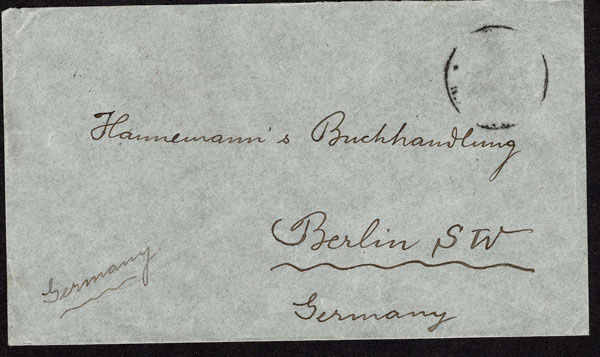 Hannemann's Buchhandlung
Berlin SW
Germany
Germany